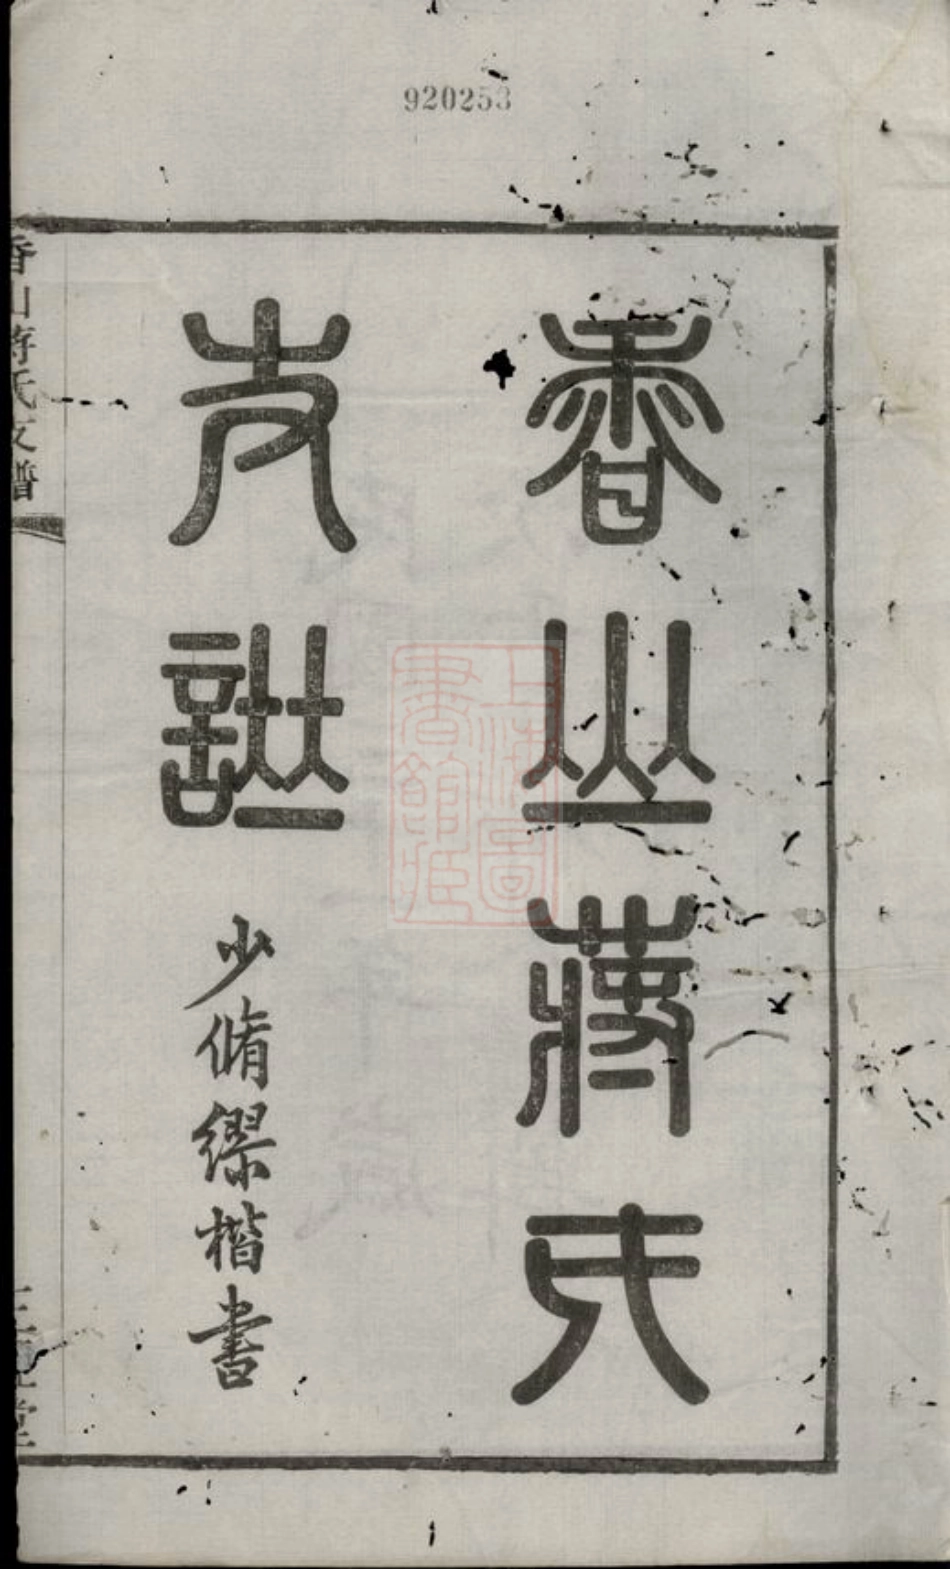 920253
香山蔣氏
支譜
少脩繆楷書
香山蔣氏支譜
上海圖
書館藏